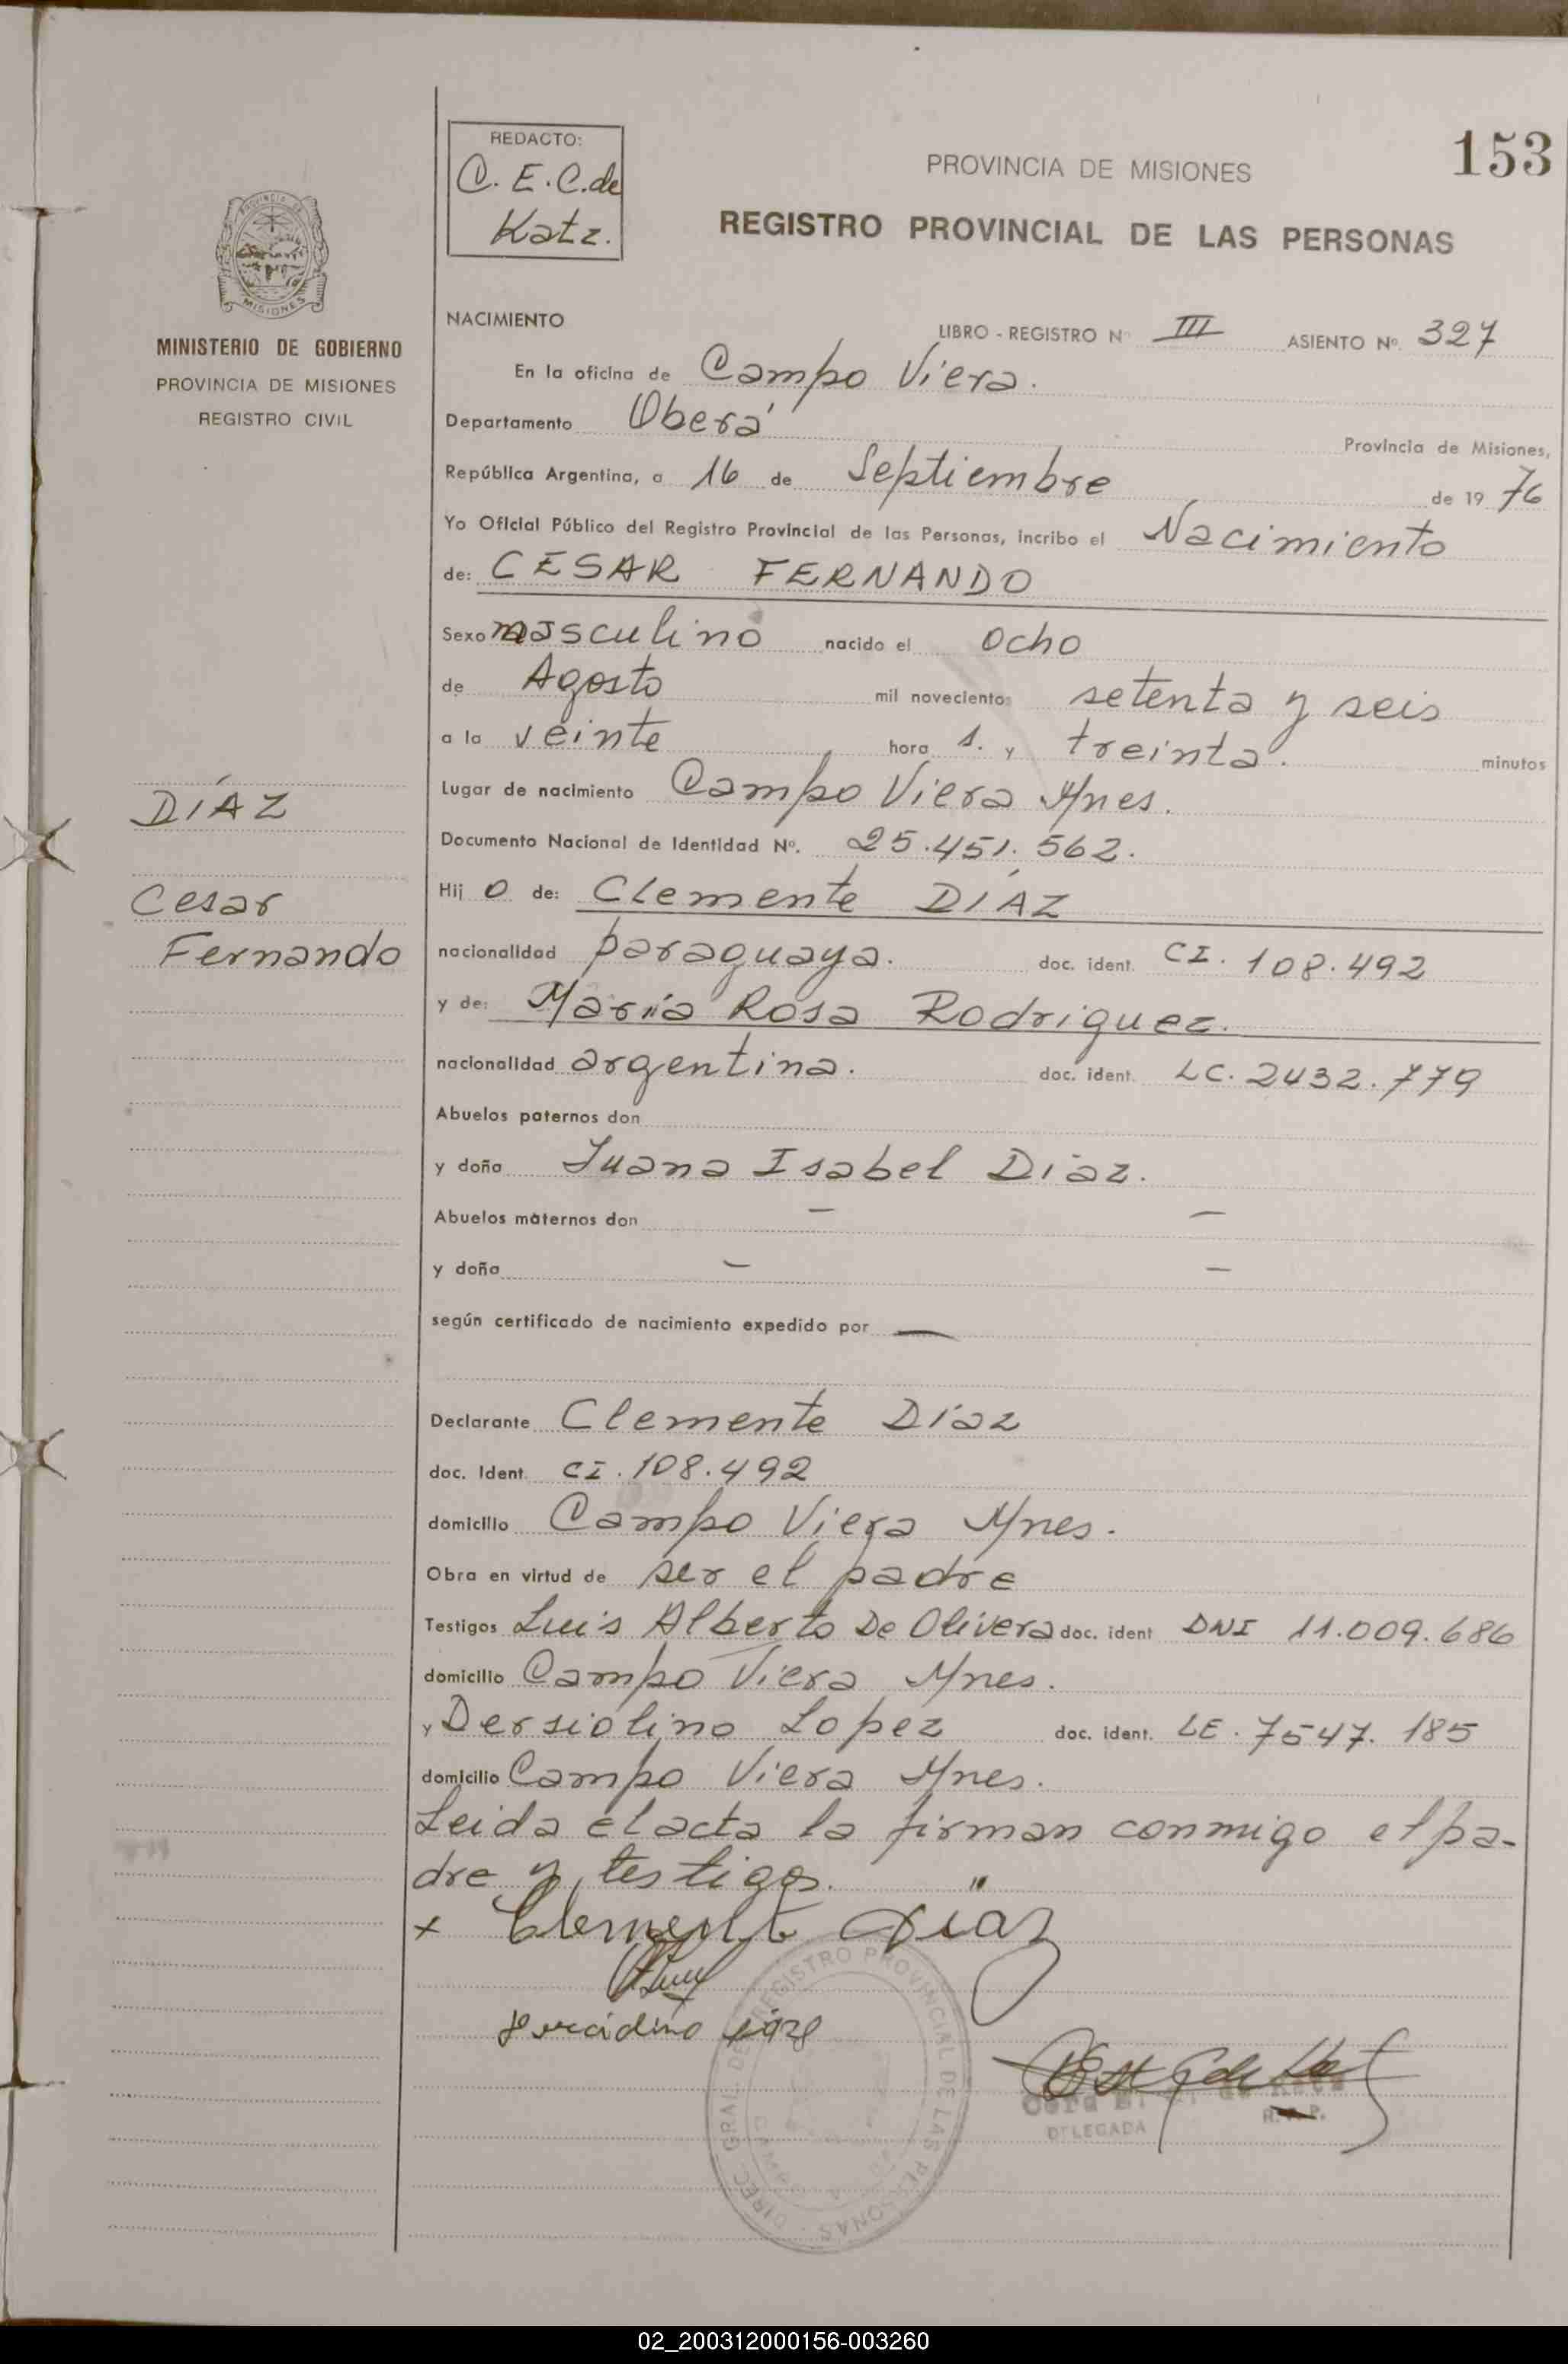 153
REDACTO:
C. E. C. de
Katz.
PROVINCIA DE MISIONES
REGISTRO PROVINCIAL DE LAS PERSONAS
MISIONES
MINISTERIO DE GOBIERNO
PROVINCIA DE MISIONES
REGISTRO CIVIL
NACIMIENTO
LIBRO - REGISTRO Nº III ASIENTO Nº. 327
En la oficina de Campo Viera.
Departamento Oberá
Provincia de Misiones,
República Argentina, a 16 de Septiembre de 19 76
Yo Oficial Público del Registro Provincial de las Personas, incribo el Nacimiento
de: CESAR FERNANDO
Sexo masculino nacido el ocho
de Agosto mil novecientos setenta y seis
a la veinte hora s. y treinta. minutos
Lugar de nacimiento Campo Viera Mnes.
Documento Nacional de Identidad Nº. 25.451.562.
Hij o de: Clemente DÍAZ
nacionalidad paraguaya. doc. ident. CI. 108.492
y de: María Rosa Rodriguez.
nacionalidad argentina. doc. ident. LC. 2432.779
Abuelos paternos don
y doña Juana Isabel Díaz.
Abuelos maternos don — —
y doña — —
según certificado de nacimiento expedido por —
Declarante Clemente Díaz
doc. Ident. CI. 108.492
domicilio Campo Viera Mnes.
Obra en virtud de ser el padre
Testigos Luis Alberto De Olivera doc. ident DNI 11.009.686
domicilio Campo Viera Mnes.
y Dersiolino Lopez doc. ident. LE. 7547.185
domicilio Campo Viera Mnes.
Leida el acta la firman conmigo el pa-
dre y testigos.
x Clemente Diaz
DIREC. GRAL. DEL REGISTRO PROVINCIAL DE LAS PERSONAS
DELEGADA
DÍAZ
Cesar
Fernando
02_200312000156-003260